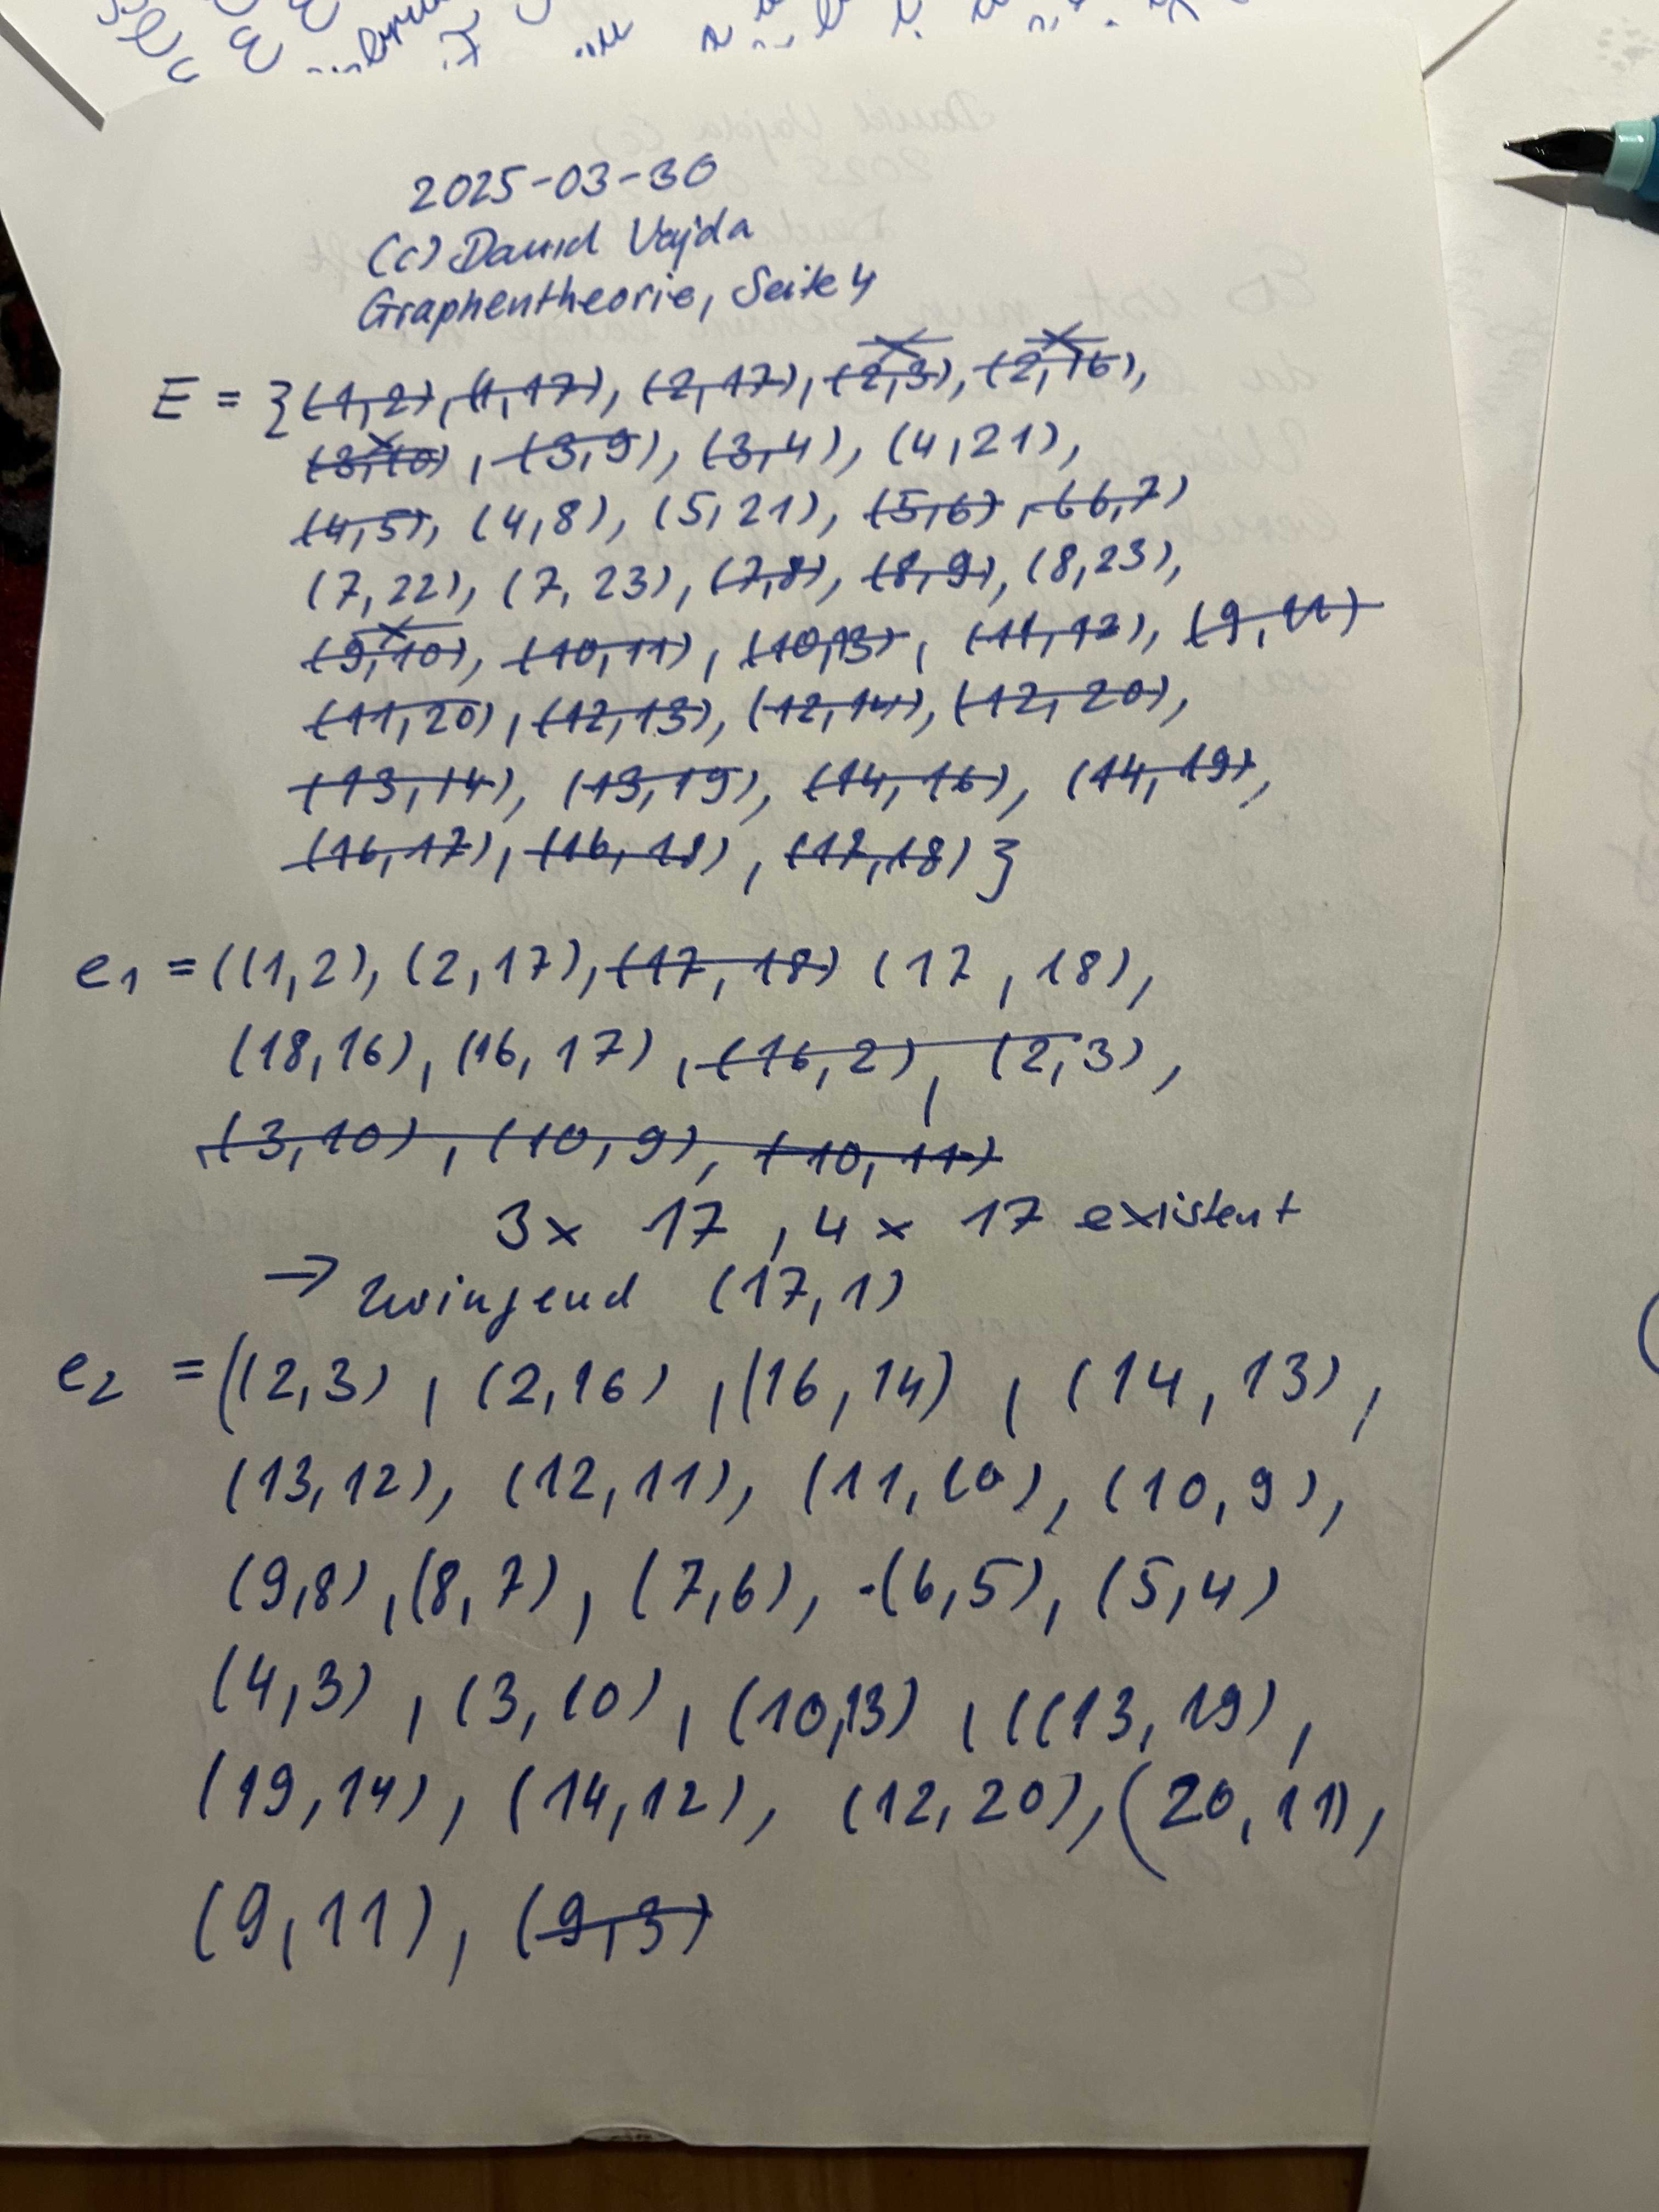 2025-03-30
(c) David Vajda
Graphentheorie, Seite 4
E = {(1,2), (1,17), (2,17), (2,3), (2,16),
(3,10), (3,9), (3,4), (4,21),
(4,5), (4,8), (5,21), (5,6), (6,7)
(7,22), (7,23), (7,8), (8,9), (8,23),
(9,10), (10,11), (10,13), (11,12), (9,11)
(11,20), (12,13), (12,14), (12,20),
(13,14), (13,19), (14,16), (14,19),
(16,17), (16,18), (17,18)}
e1 = ((1,2), (2,17), (17,18) (17,18),
(18,16), (16,17), (16,2), (2,3),
(3,10), (10,9), (10,11)
3x 17, 4x 17 existent
→ zwingend (17,1)
e2 = ((2,3), (2,16), (16,14), (14,13),
(13,12), (12,11), (11,10), (10,9),
(9,8), (8,7), (7,6), (6,5), (5,4)
(4,3), (3,10), (10,13), (((13,19),
(19,14), (14,12), (12,20), (20,11),
(9,11), (9,3)